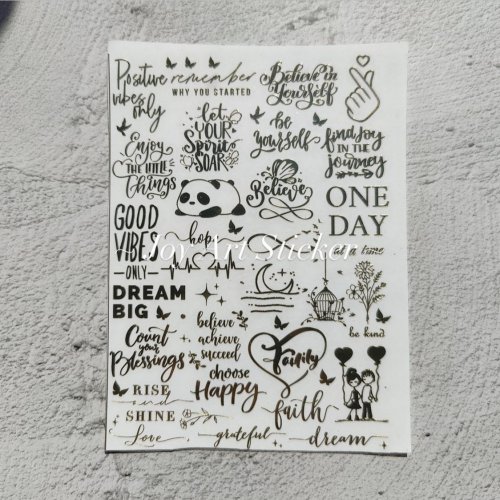 Positive
vibes
only
remember
WHY YOU STARTED
Believe in
Yourself
let
YOUR
Spirit
SOAR
be
yourself
find joy
IN THE
journey
Enjoy
THE LITTLE
things
Believe
ONE
DAY
at a time
GOOD
VIBES
ONLY
hope
Joy Art Sticker
DREAM
BIG
believe
achieve
succeed
be kind
Count
your
Blessings
choose
Happy
Family
RISE
and
SHINE
faith
love
grateful
dream